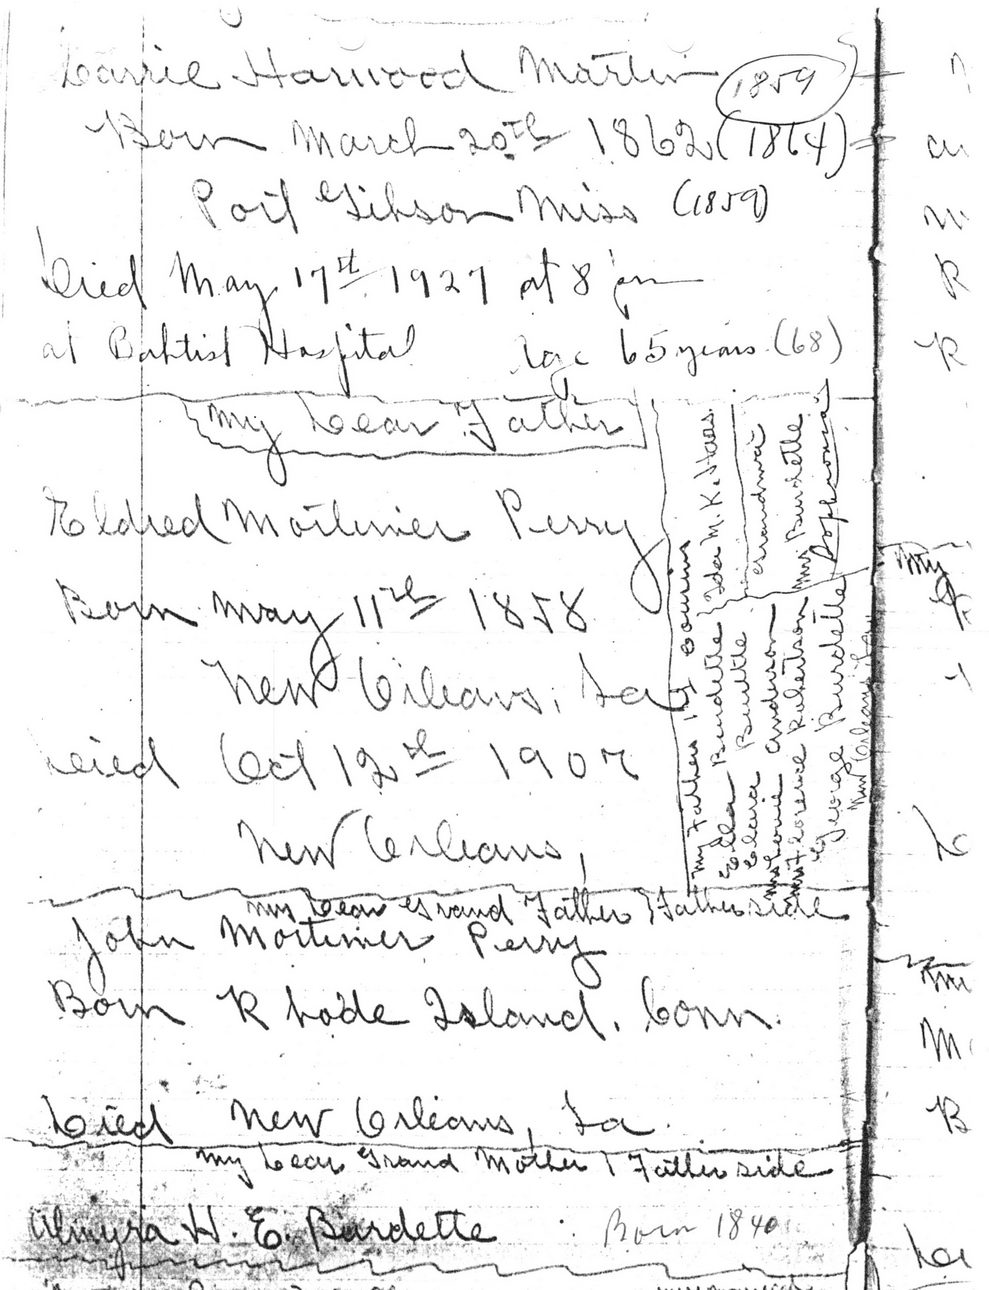 Carrie Harwood Martin (1859)
Born March 20th 1862 (1864)
Port Gibson Miss (1859)
Died May 17st 1927 at 8 pm
at Babtist Hospital age 65 years (68)
My Dear Father
Eldred Mortimer Perry
Born May 11th 1858
New Orleans, La
Died Oct 12th 1907
New Orleans,
My Fathers 1st Cousins
Ella Burdette Ida M. K. Haas.
Clara Burdette
Mrs Lonie Anderson Grandma
Mrs Florence Robertson Mrs Burdette
George Burdette Sophronia
New Orleans La
My Dear Grand Father Father side
John Mortimer Perry
Born Rhode Island, Conn.
Died New Orleans, La
My Dear Grand Mother Father side
Almyra H. E. Burdette Born 1840
My